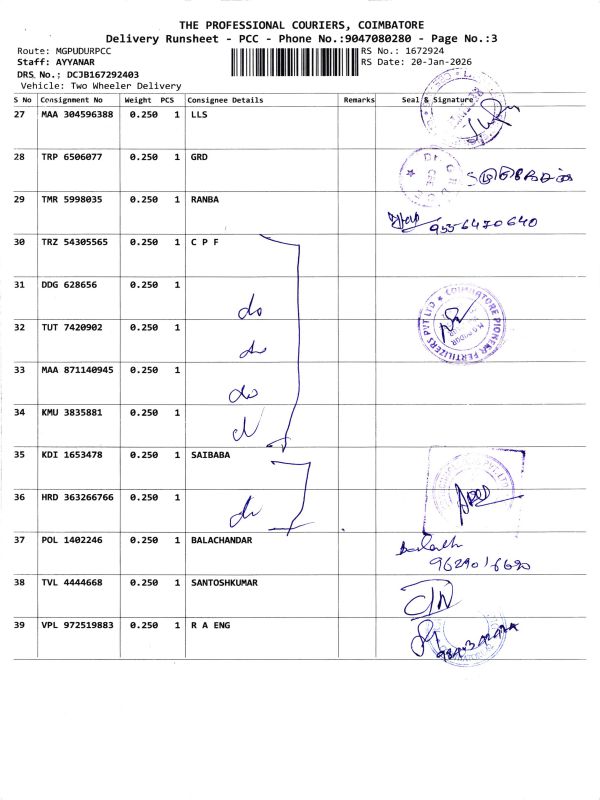 THE PROFESSIONAL COURIERS, COIMBATORE
Delivery Runsheet - PCC - Phone No.:9047080280 - Page No.:3
Route: MGPUDURPCC RS No.: 1672924
Staff: AYYANAR RS Date: 20-Jan-2026
DRS No.: DCJB167292403
Vehicle: Two Wheeler Delivery
S No Consignment No Weight PCS Consignee Details Remarks Seal & Signature
27 MAA 304596388 0.250 1 LLS
28 TRP 6506077 0.250 1 GRD
29 TMR 5998035 0.250 1 RANBA
9556470640
30 TRZ 54305565 0.250 1 C P F
31 DDG 628656 0.250 1
do
COIMBATORE PIONEER FERTILIZERS PVT LTD
32 TUT 7420902 0.250 1
do
33 MAA 871140945 0.250 1
do
34 KMU 3835881 0.250 1
35 KDI 1653478 0.250 1 SAIBABA
36 HRD 363266766 0.250 1
do
37 POL 1402246 0.250 1 BALACHANDAR
9629016690
38 TVL 4444668 0.250 1 SANTOSHKUMAR
39 VPL 972519883 0.250 1 R A ENG